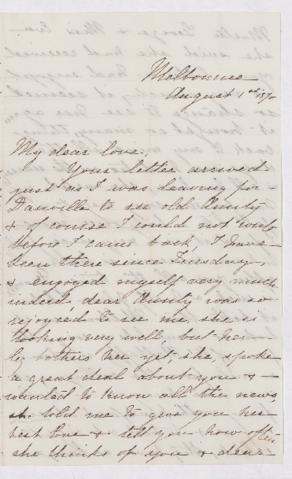 Melbourne
August 1st
My dear love,
Your letter arrived
just as I was leaving for
Danville to see old Aunty
& of course I could not write
before I came back, I have
been there since Tuesday
& enjoyed myself very much
indeed dear Aunty was so
rejoyced to see me, she is
looking very well, but her
bothers her yet, she spoke
a great deal about you &
wanted to know all the news
told me to give you her
best love & tell you how often
she thinks of you & dear